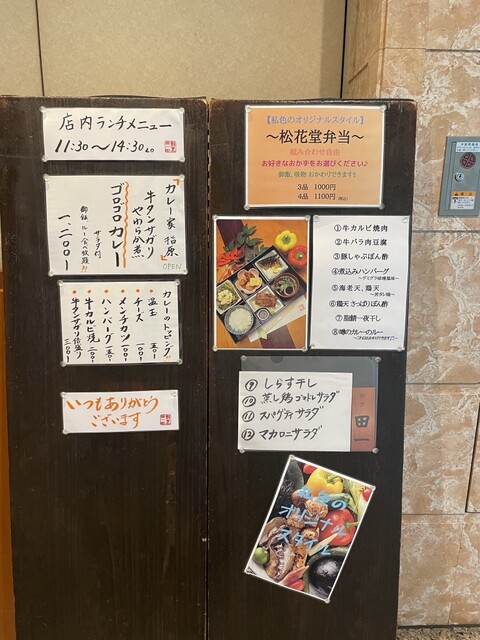 店内ランチメニュー
11:30〜14:30 L.O
カレー家 指原
OPEN
牛タンサガリ
やわらか煮
ゴロゴロカレー
サラダ付
御飯、ルー食べ放題!!
一、二〇〇
カレーのトッピング
・温玉 五〇
・チーズ 一〇〇
・メンチカツ 一〇〇
・ハンバーグ 一五〇
・牛カルビ焼 二〇〇
・牛タンサガリ倍盛り 三〇〇
いつもありがとう
ございます
【私色のオリジナルスタイル】
〜松花堂弁当〜
組み合わせ自由
お好きなおかずをお選びください♪
御飯、吸物 おかわりできます!
3品 1000円
4品 1100円 (税込)
①牛カルビ焼肉
②牛バラ肉豆腐
③豚しゃぶポン酢
④煮込みハンバーグ
〜デミグラ味噌風味〜
⑤海老天、鶏天
〜天タレ味〜
⑥鶏天 さっぱりポン酢
⑦脂鯖一夜干し
⑧噂のカレーのルー
⑨しらす干し
⑩蒸し鶏ゴマドレサラダ
⑪スパゲティサラダ
⑫マカロニサラダ
私色の
オリジナル
スタイル